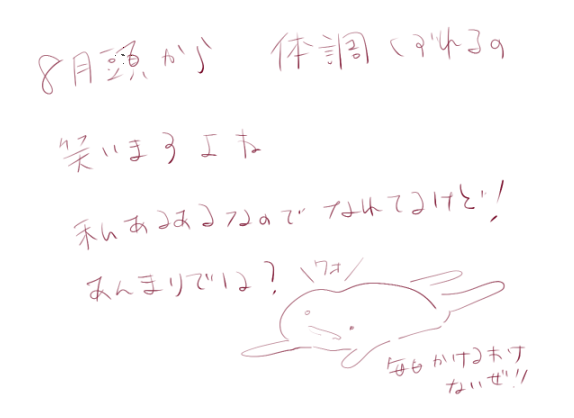 8月頭から 体調くずれるの
笑いますよね
私あるあるなので なれてるけど!
あんまりでは?
\ワオ/
毎日かけるわけ
ないぜ!!